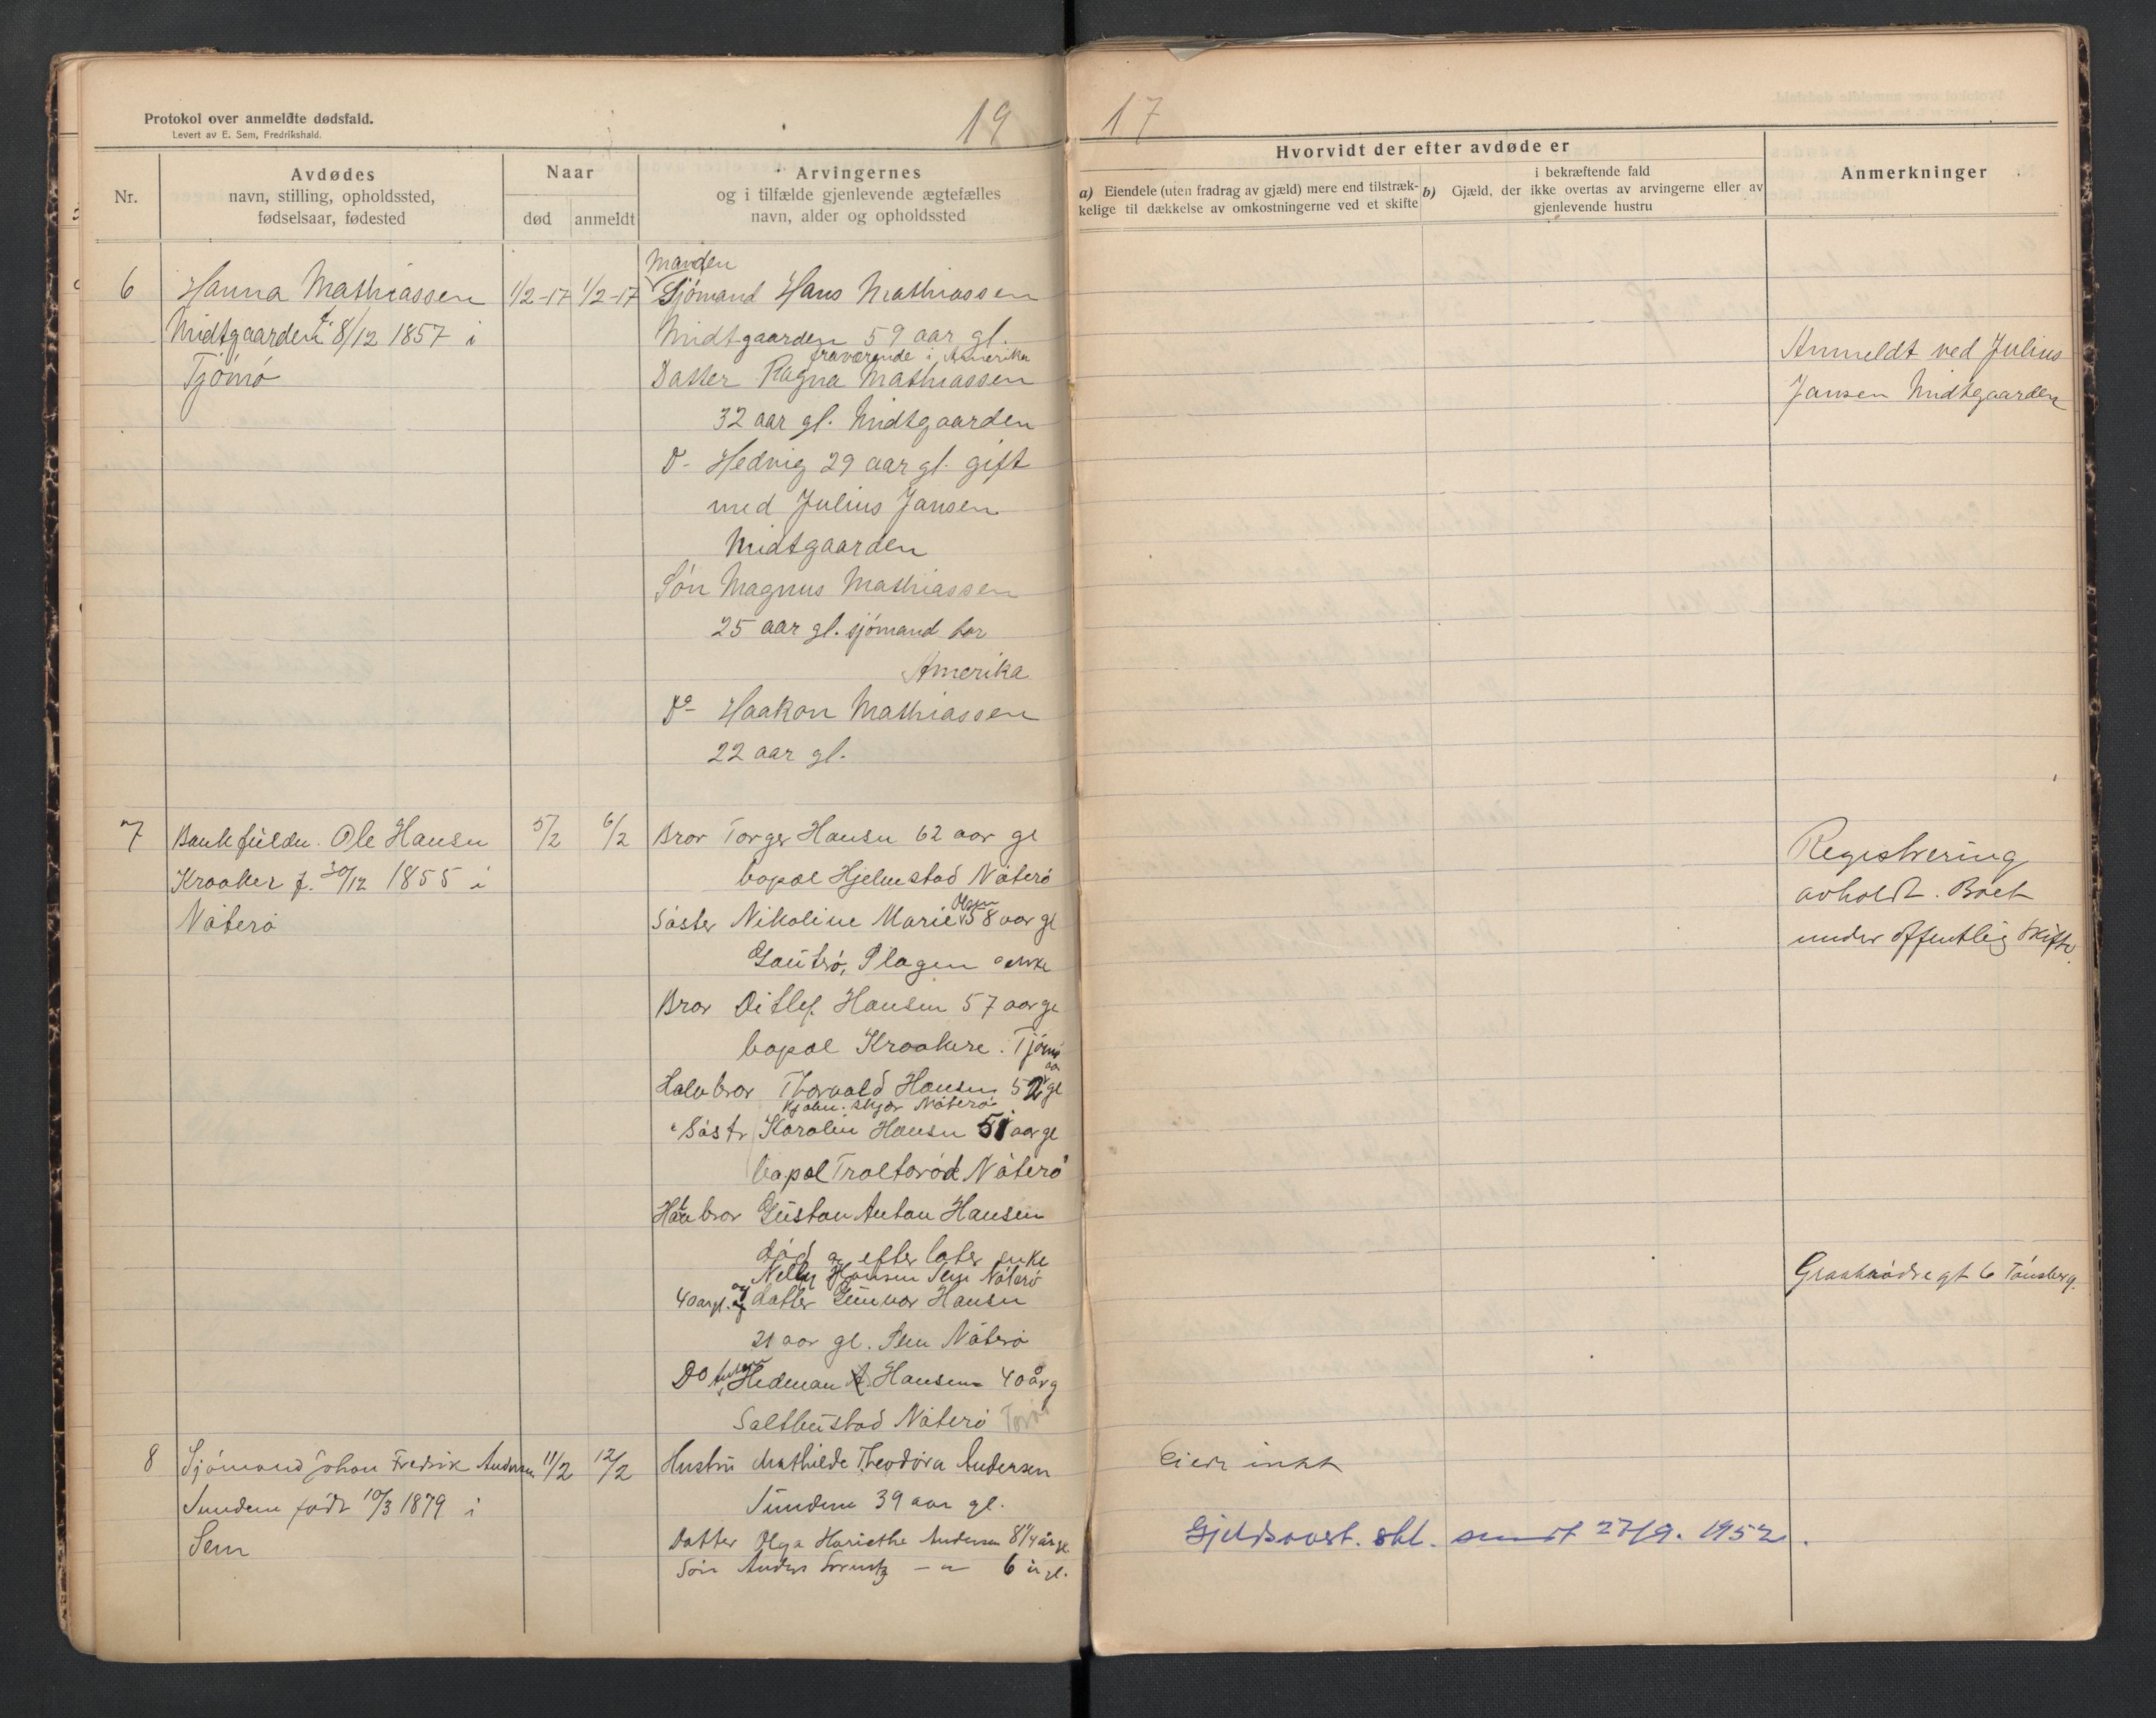 Protokol over anmeldte dødsfald.
Levert av E. Sem, Fredrikshald.
19
Nr.
Avdødes
navn, stilling, opholdssted,
fødselsaar, fødested
Naar
død
anmeldt
Arvingernes
og i tilfælde gjenlevende ægtefælles
navn, alder og opholdssted
6
Hanna Mathiassen
Midtgaarden f. 8/12 1857 i
Tjømø
1/2-17
1/2-17
Manden
Sjømand Hans Mathiassen
Midtgaarden 59 aar gl.
fraværende i Amerika
Datter Ragna Mathiassen
32 aar gl. Midtgaarden
Do- Hedvig 29 aar gl. gift
med Julius Jansen
Midtgaarden
Søn Magnus Mathiassen
25 aar gl. sjømand bor
Amerika
Do- Haakon Mathiassen
22 aar gl.
7
Ole Hansen
Kraaker f. 30/12 1855 i
Nøterø
5/2
6/2
Bror Torger Hansen 62 aar gl
bopæl Hjelmstad Nøterø
Søster Nikoline Marie Olsen 58 aar gl
Plagen enke
Bror Ditlef Hansen 57 aar gl
bopæl Kraakere. Tjømø
Halvbror Thorvald Hansen 52 aar gl
Nøterø
" Søstr Karolin Hansen 51 aar gl
bopæl Nøterø
Halvbror Gustav Anton Hansen
død og efterlater enke
Nelly Hansen Nøterø
40 aar gl. og datter Gunvor Hansen
21 aar gl. Nøterø
Do Hedman Hansen 40 år g
Nøterø
8
Sjømand Johan Fredrik Andersen
Sundene født 10/3 1879 i
Sem
11/2
12/2
Hustru Mathilde Theodora Andersen
Sundene 39 aar gl.
Datter Olga Hariethe Andersen 8 1/4 år gl.
Søn Anders Lorentz — " — 6 år gl.
17
Hvorvidt der efter avdøde er
a) Eiendele (uten fradrag av gjæld) mere end tilstræk-
kelige til dækkelse av omkostningerne ved et skifte
i bekræftende fald
b) Gjæld, der ikke overtas av arvingerne eller av
gjenlevende hustru
Anmerkninger
Anmeldt ved Julius
Jansen Midtgaarden
Registrering
avholdt. Boet
under offentlig skifte.
gt 6 Tønsberg.
Eier intet
Gjeldsovert. skl. sendt 27/9. 1952.